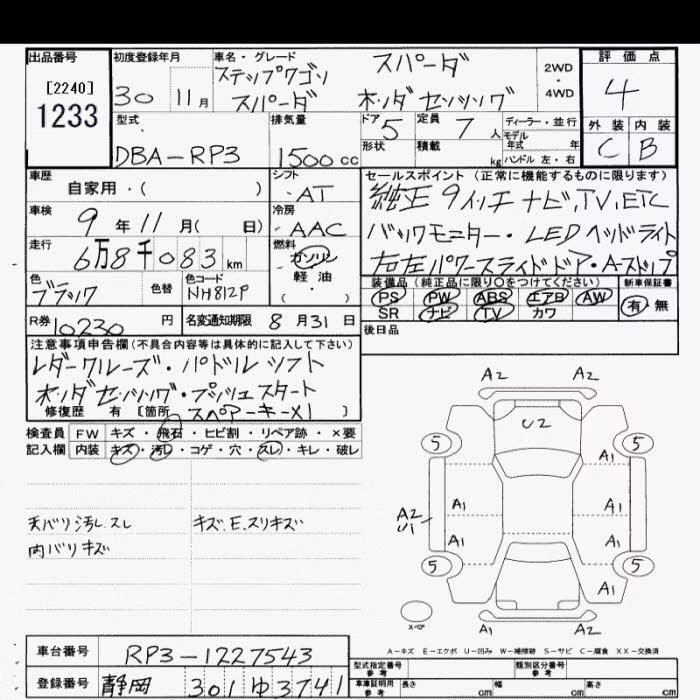 出品番号 初度登録年月 車名・グレード 評価点
[2240] ステップワゴン スパーダ 2WD
1233 30 11月 スパーダ ホンダセンシング 4WD 4
型式 排気量 ドア 5 定員 7人 ディーラー・並行 外装 内装
DBA-RP3 1500cc 形状 積載 kg モデル年式 年 C B
ハンドル 左・右
車歴 シフト セールスポイント (正常に機能するものに限ります)
自家用・( ) AT 純正9インチナビ,TV,ETC
車検 9年11月( 日) 冷房 AAC バックモニター・LEDヘッドライト
走行 6万8千083km 燃料 ガソリン 右左パワースライドドア・Aストップ
軽油
・
( )
色 ブラック 色替 色コード NH812P
装備品 (純正品に限り○をつけてください) 新車保証書
PS PW ABS エアB AW 有 無
SR ナビ TV カワ
R券 10230円 名変通知期限 8月31日 後日品
注意事項申告欄 (不具合内容等は具体的に記入して下さい)
レダークルーズ・パドルシフト
ホンダセンシング・プッシュスタート
修復歴 有 [箇所 スペアーキー×1 ]
検査員 FW キズ・飛石・ヒビ割・リペア跡・×要
記入欄 内装 キズ・汚レ・コゲ・穴・スレ・キレ・破レ
天バリ汚レ.スレ キズ.E.スリキズ
内バリキズ
A2 A2
U2
5 5
A1
A1 A1
A2
U1
A1 A1
5 5
A1
A1 A2
スペア
A-キズ E-エクボ U-凹み W-補修跡 S-サビ C-腐食 XX-交換済
車台番号 RP3-1227543
型式指定番号 参考 類別区分番号 参考
登録番号 静岡 301 ゆ3741
車庫証明用 参考 長さ cm 幅 cm 高さ cm